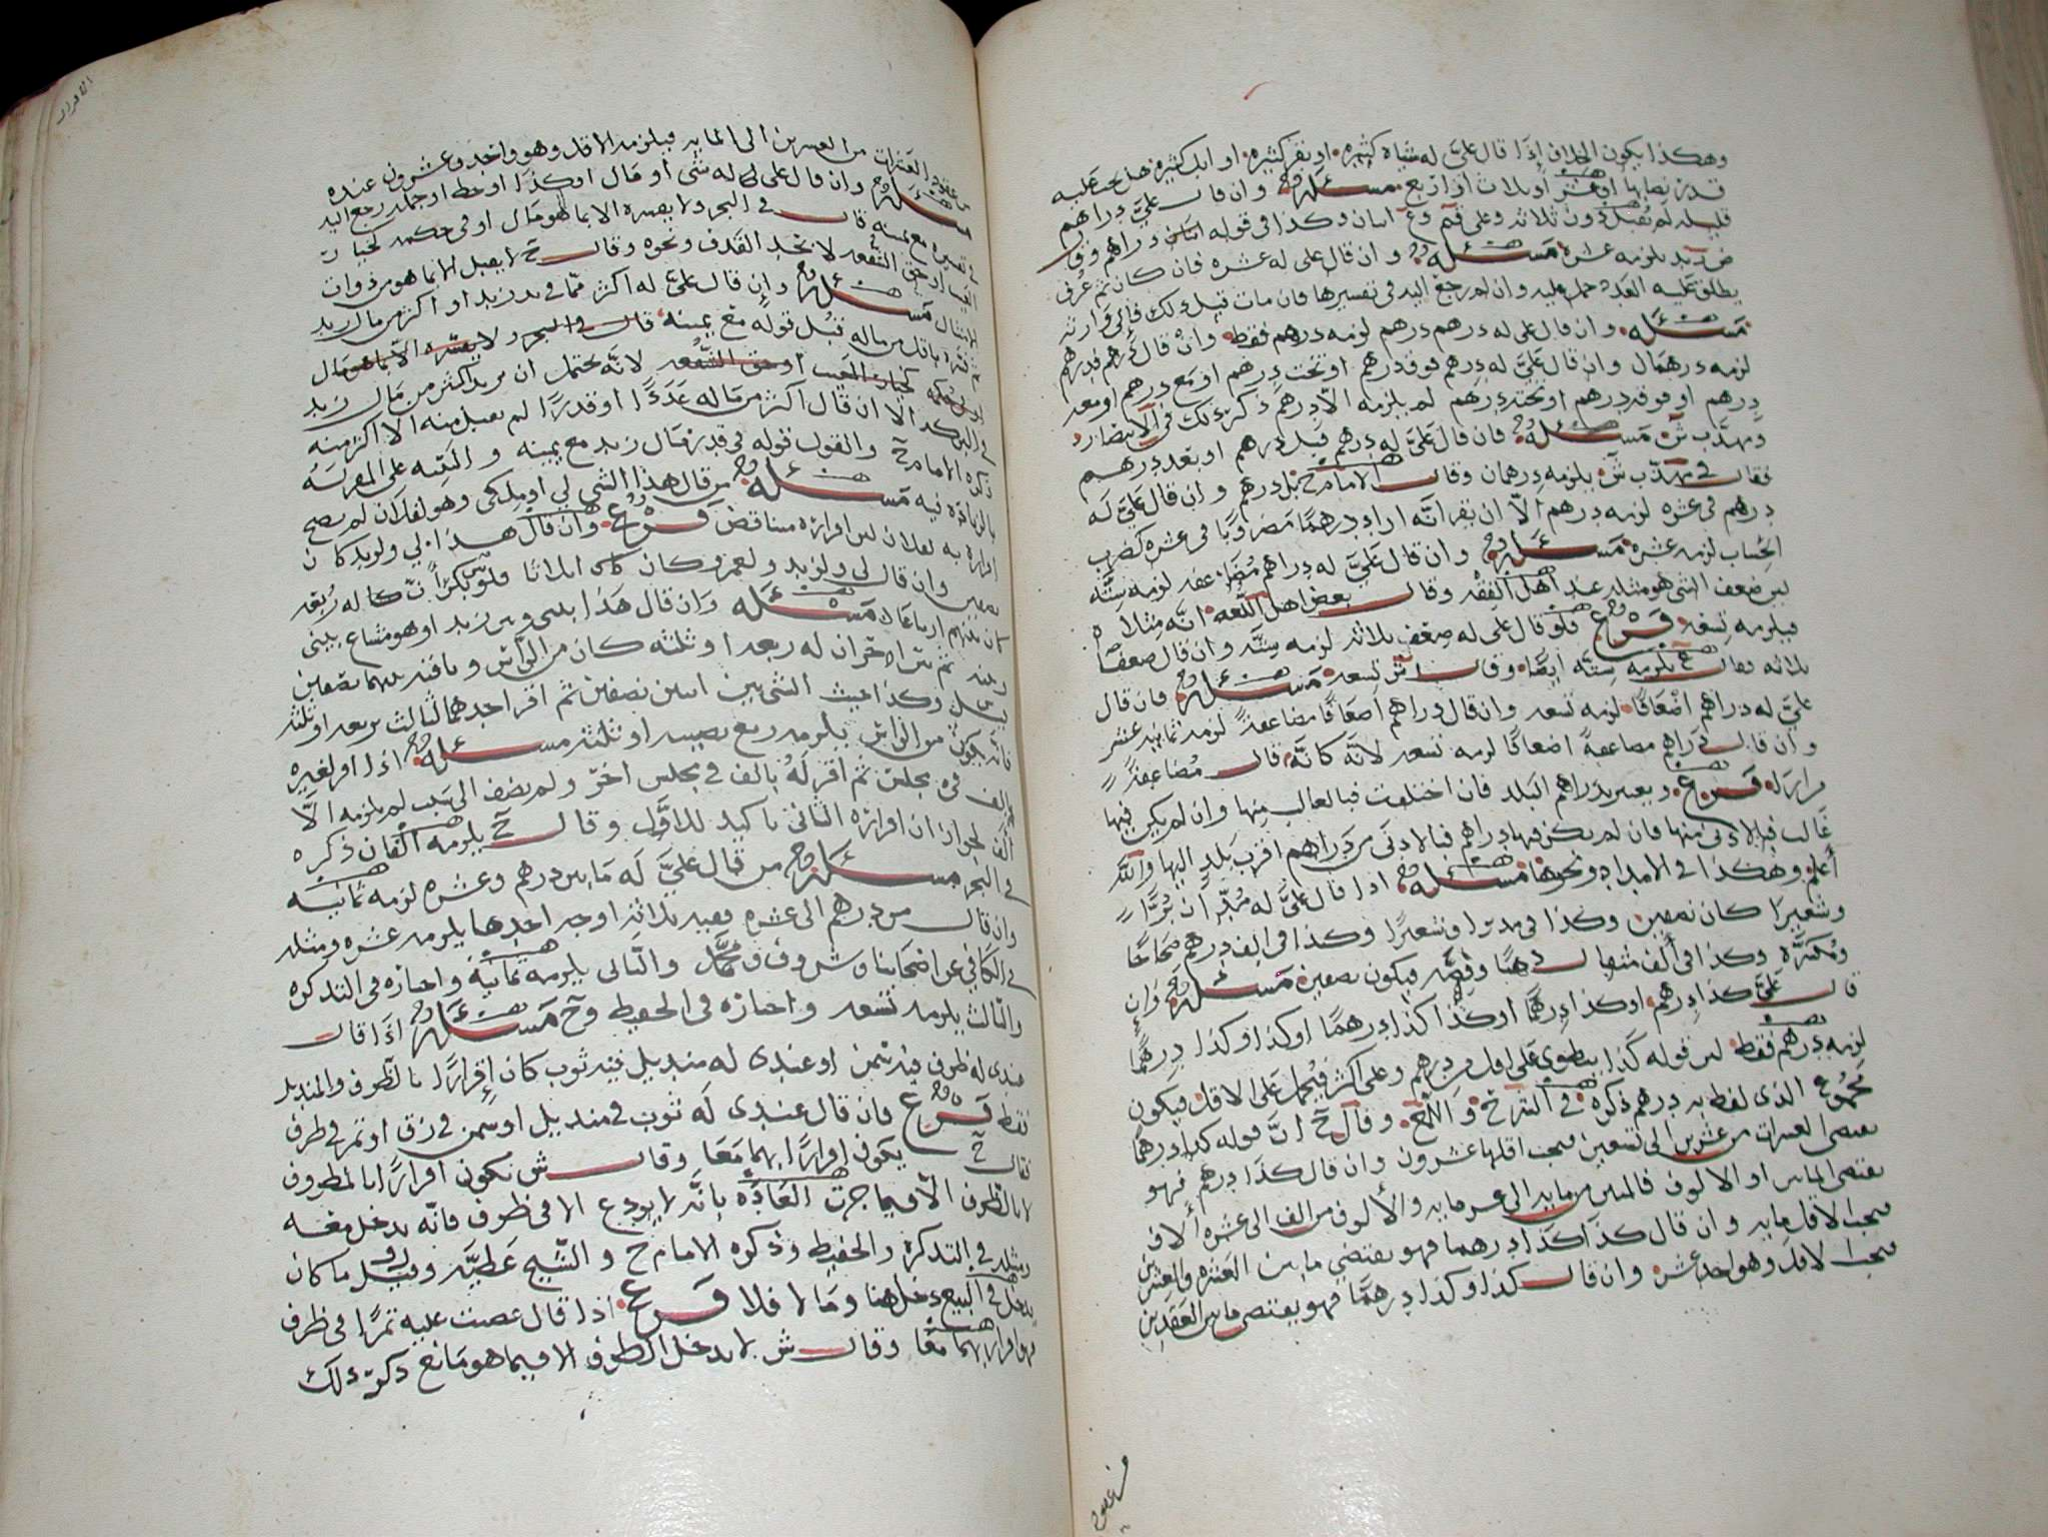 وهكذا يكون الخلاف اذا قال عليّ له شياه كثيره او بقر كثيره او ابل كثيره هل يجب عليه
قدر نصابها او عشر او ثلاث او اربع مسئله وان قال عليّ دراهم
قليله لم يقبل دون ثلاثه وعلى قيم وع اثنان وكذا في قوله دراهم
يلزمه عشره مسئله وان قال علي له عشره فان كان ثم عرف
يطلق عليه العدد حمل عليه وان لم رجع اليه في تفسيرها فان مات قبل ذلك فالى وارثه
مسئله وان قال علي له درهم درهم درهم لزمه درهم فقط وان قال درهم فدرهم
لزمه درهمان وان قال عليّ له درهم فوق درهم او تحت درهم او مع درهم او معه
درهم او فوقه درهم او تحته درهم لم يلزمه الا درهم ذكر ذلك في الانتصار
ومهذب ش مسئله فان قال عليّ له درهم قبل درهم او بعد درهم
فقال في مهذب ش يلزمه درهمان وقال الامام ح بل درهم وان قال عليّ له
درهم في عشره لزمه درهم الّا ان يقر انّه اراد درهما مضروبا في عشره كضرب
الحساب لزمه عشره مسئله وان قال عليّ له دراهم مضاعفه لزمه ستّه
لان ضعف الشي هو مثله عند اهل الفقه وقال بعض اهل اللغه انّه مثلاه
فيلزمه تسعه فرع فلو قال علي له ضعف ثلاثه لزمه ستّه وان قال ضعفا
ثلاثه فقال ع يلزمه ستّه ايضا وقال ش تسعه مسئله فان قال
عليّ له دراهم اضعافا لزمه تسعه وان قال دراهم اضعافا مضاعفة لزمه ثمانيه عشر
وان قال دراهم مضاعفة اضعافا لزمه تسعه لانّه كانّه قال مضاعفة
مرارا له فرع ويعتبر بدراهم البلد فان اختلفت فبالغالب منها وان لم يكن فيها
غالب فبالادنى منها فان لم يكن فيها دراهم فبالادنى من دراهم اقرب بلد اليها والله
أعلم وهكذا في الامداد ونحوها مسئله اذا قال عليّ له مدّان برّا
وشعيرا كان نصفين وكذا في مد برا وشعيرا وكذا في الف درهم صحاحا
ومكسّرة وكذا في ألف مثقال ذهبًا وفضّه فيكون نصفين مسئله وان
قال عليّ كذا درهم او كذا درهمًا او كذا كذا درهمًا او كذا وكذا درهمًا
لزمه درهم فقط لان قوله كذا ينطوي على اقل من درهم وعلى اكثر فيحمل على الاقل فيكون
مجموع الذي لفظ به درهم ذكره في الشرح واللمع وقال ح انّ قوله كذا درهمًا
يقتضي العشرات من عشرين الى تسعين فيجب اقلها عشرون وان قال كذا درهم فهو
يقتضي المائين او الالوف فالمئين من مايه الى عشر مايه والألوف من الف الى عشره آلاف
فيجب الاقل مايه وان قال كذا كذا درهما فهو يقتضي ما بين العشره والعشرين
فيجب الاقل وهو احد عشر وان قال كذا وكذا درهمًا فهو يقتضي ما بين العقدين
الاقرار
من عقود العشرات من العشرين الى المايه فيلزمه الاقل وهو واحد وعشرون عنده
مسئله وان قال علي له شي أو مال او كذا او حط او جمله رجع اليه
في تفسيره مع يمينه قال في البحر ولا يفسره الا بما هو مال او في حكمه كخيارات
العيب او حق الشفعه لا بحد القذف ونحوه وقال ح لا يقبل الا بما هو من ذوات
الامثال مسئله وإن قال عليّ له اكثر ممّا في يد زيد او اكثر من مال زيد
باقل من ماله قبل قوله مع يمينه قال في البحر ولا يفسّره الّا بما هو مال
او في حكمه كخيار العيب او حق الشفعه لانّه يحتمل ان يريد اكثر من مال زيد
الا ان قال اكثر من ماله عددًا او قدرًا لم يقبل منه الا اكثر منه
ذكره الامام ح والقول قوله في قدر مال زيد مع يمينه والبينه على المقر له
بالزياده فيه مسئله من قال هذا الشي لي او ملكي وهو لفلان لم يصح
اقراره به لفلان لان اقراره متناقض فرع وان قال هذا لي ولزيد كان
نصفين وان قال لي ولزيد ولعمرو كان اثلاثا فلو
كان بينهم ارباعا مسئله وان قال هذا بيني وبين زيد او هو مشاع بيني
وبينه ثم اقرّ الاخر ان له ربعه او ثلثه كان من الراس وباقيه بينهما نصفين
وكذا حيث الشي بين اثنين نصفين ثم اقر احدهما لثالث بربعه او ثلثه
فانه يكون من الراس فيلزمه ربع نصيبه او ثلثه مسئله اذا اقر لغيره
بالف في مجلس ثم اقر له بالف في مجلس اخر ولم يضف الى سبب لم يلزمه الّا
ألف لجواز ان اقراره الثاني تاكيد للاوّل وقال ح يلزمه الفان ذكره
في البحر مسئله من قال عليّ له ما بين درهم وعشره لزمه ثمانيه
وان قال من درهم الى عشره ففيه ثلاثة اوجه احدها يلزمه عشره ومثله
في الكافي عن اصحابنا وش وف ومحمّد والثاني يلزمه ثمانية واختاره في التذكره
والثالث يلزمه تسعه واختاره في الحفيظ وح مسئله اذا قال
عندي له ظرف فيه سمن او عندي له منديل فيه ثوب كان إقرارًا بالظرف والمنديل
فقط فرع فان قال عندي له ثوب في منديل او سمن في زق او تمر في ظرف
فقال ح يكون اقرارًا بهما معا وقال ش يكون اقرارًا بالمظروف
لا بالظرف الّا فيما جرت العادة بانّه لا يودع الا في ظرف فانّه يدخل معه
ومثله في التذكرة والحفيظ وذكره الامام ح والشيخ عطيّه وقيل ف ما كان
يدخل في البيع دخل هنا وما لا فلا فرع اذا قال غصبت عليه تمرًا في ظرف
فهو اقرار بهما معا وقال ش لا يدخل الظرف الا فيما هو مايع ذكر ذلك